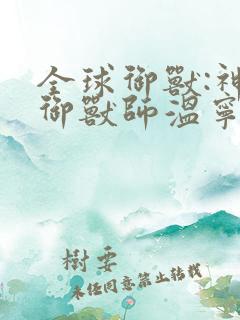 全球御獸:神
御獸師溫寧
樹要
未經同意禁止轉載